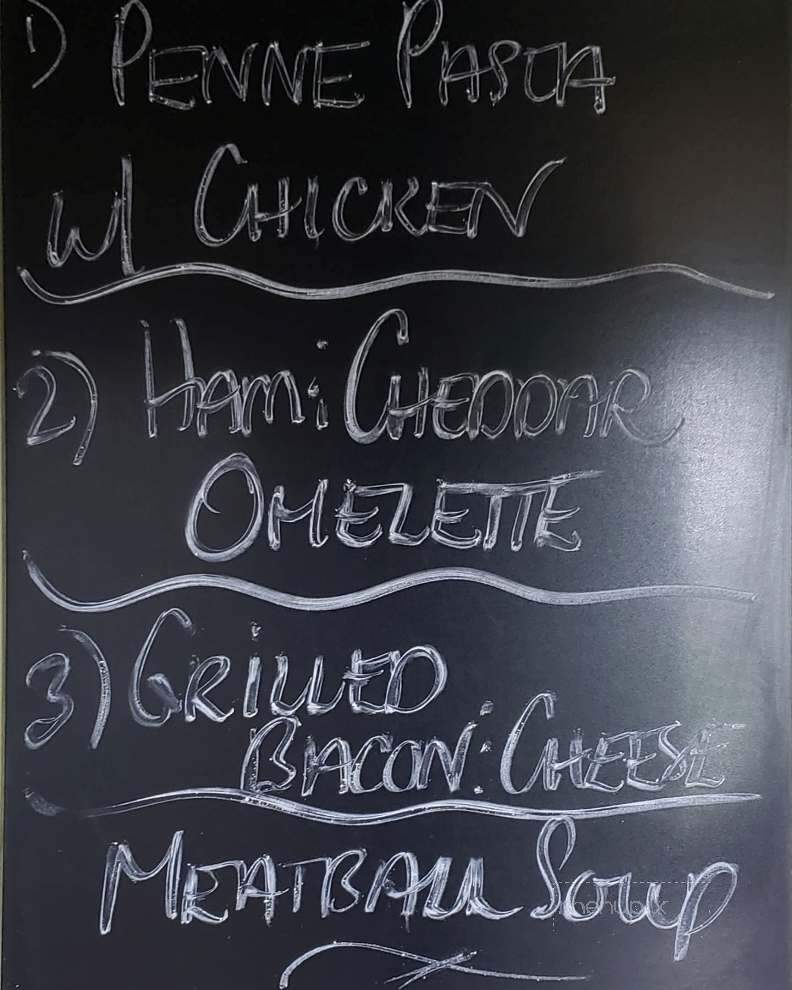 1) PENNE PASTA
W/ CHICKEN
2) HAM : CHEDDAR
OMELETTE
3) GRILLED
BACON : CHEESE
MEATBALL SOUP
menupix